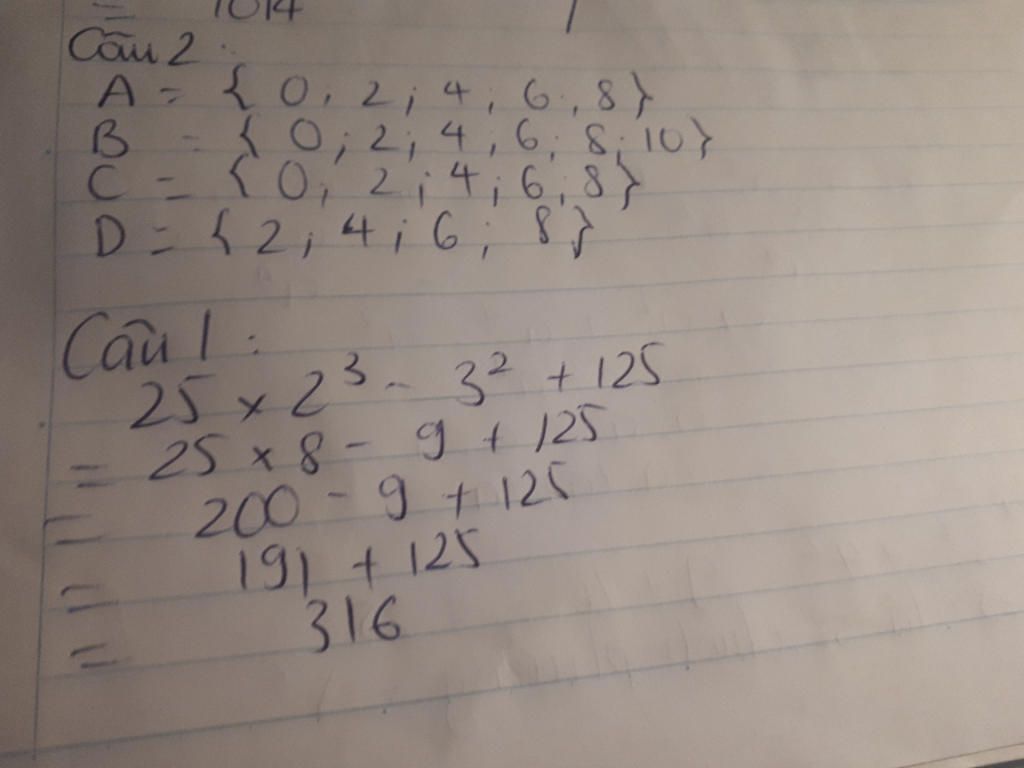 = 1014
Câu 2 :
A = { 0 ; 2 ; 4 ; 6 ; 8 }
B = { 0 ; 2 ; 4 ; 6 ; 8 ; 10 }
C = { 0 ; 2 ; 4 ; 6 ; 8 }
D = { 2 ; 4 ; 6 ; 8 }
Câu 1 :
25 × 2³ - 3² + 125
= 25 × 8 - 9 + 125
= 200 - 9 + 125
= 191 + 125
= 316